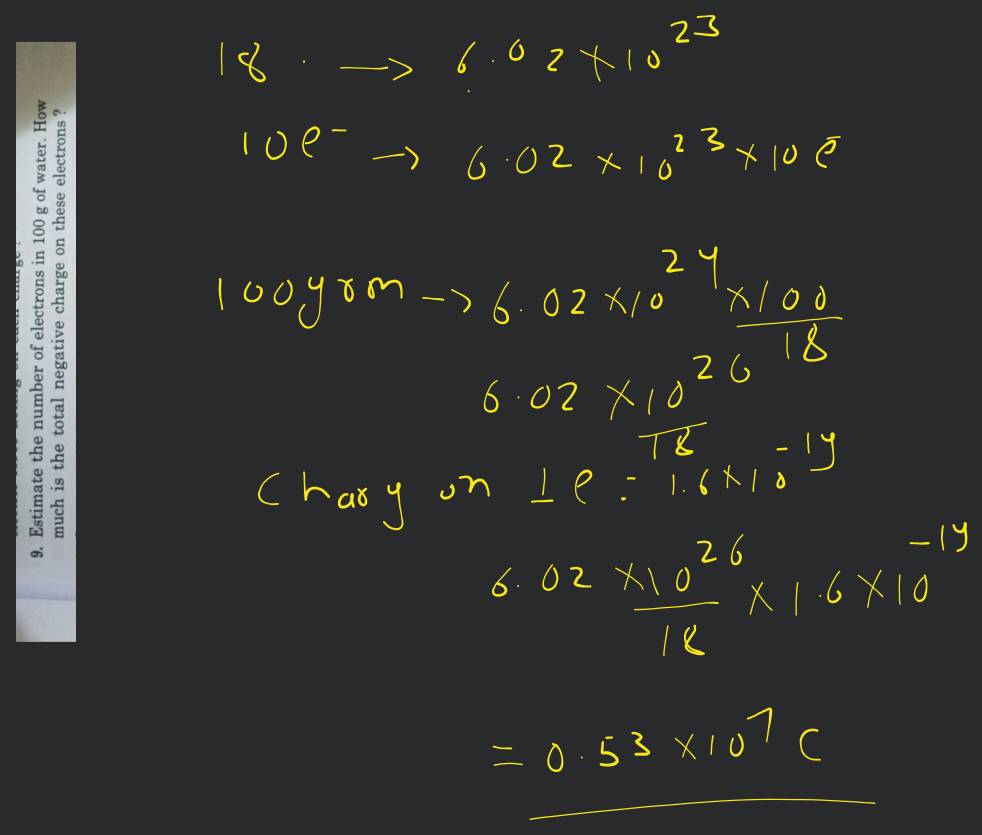 9. Estimate the number of electrons in 100 g of water. How
much is the total negative charge on these electrons ?
18 . → 6.02×10²³
10e⁻ → 6.02 × 10²³ × 10 e⁻
100grm → 6.02 ×10²⁴ × 100/18
6.02 × 10²⁶/18
Charg on 1 e = 1.6×10⁻¹⁹
6.02 × 10²⁶/18 × 1.6 × 10⁻¹⁹
= 0.53 ×10⁷ C